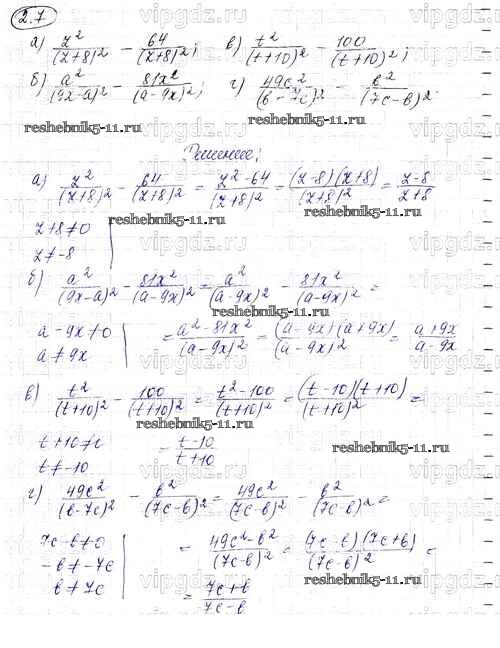 2.7
а) z²/(z+8)² − 64/(z+8)²; в) t²/(t+10)² − 100/(t+10)²;
б) a²/(9x−a)² − 81x²/(a−9x)²; г) 49c²/(b−7c)² − b²/(7c−b)².
reshebnik5-11.ru reshebnik5-11.ru
Решение;
а) z²/(z+8)² − 64/(z+8)² = z²−64/(z+8)² = (z−8)(z+8)/(z+8)² = z−8/z+8
reshebnik5-11.ru
z+8≠0
z≠−8
б) a²/(9x−a)² − 81x²/(a−9x)² = a²/(a−9x)² − 81x²/(a−9x)² =
reshebnik5-11.ru
a−9x≠0 = a²−81x²/(a−9x)² = (a−9x)(a+9x)/(a−9x)² = a+9x/a−9x
a≠9x
в) t²/(t+10)² − 100/(t+10)² = t²−100/(t+10)² = (t−10)(t+10)/(t+10)² =
reshebnik5-11.ru
t+10≠0 = t−10/t+10
t≠−10
reshebnik5-11.ru
г) 49c²/(b−7c)² − b²/(7c−b)² = 49c²/(7c−b)² − b²/(7c−b)² =
7c−b≠0 = 49c²−b²/(7c−b)² = (7c−b)(7c+b)/(7c−b)² =
−b≠−7c
reshebnik5-11.ru
b≠7c = 7c+b/7c−b
vipgdz.ru